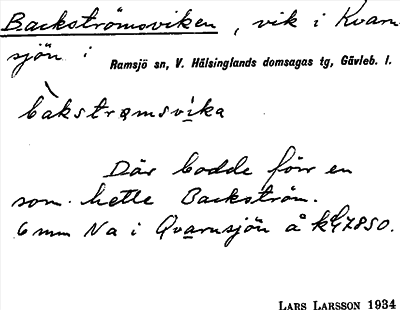 Backströmsviken, vik i Kvarn
sjön i Ramsjö sn, V. Hälsinglands domsagas tg, Gävleb. l.
bàkstrąmsvịka
Där bodde förr en
som hette Backström.
6 mm Na i Qvarnsjön å
LARS LARSSON 1934